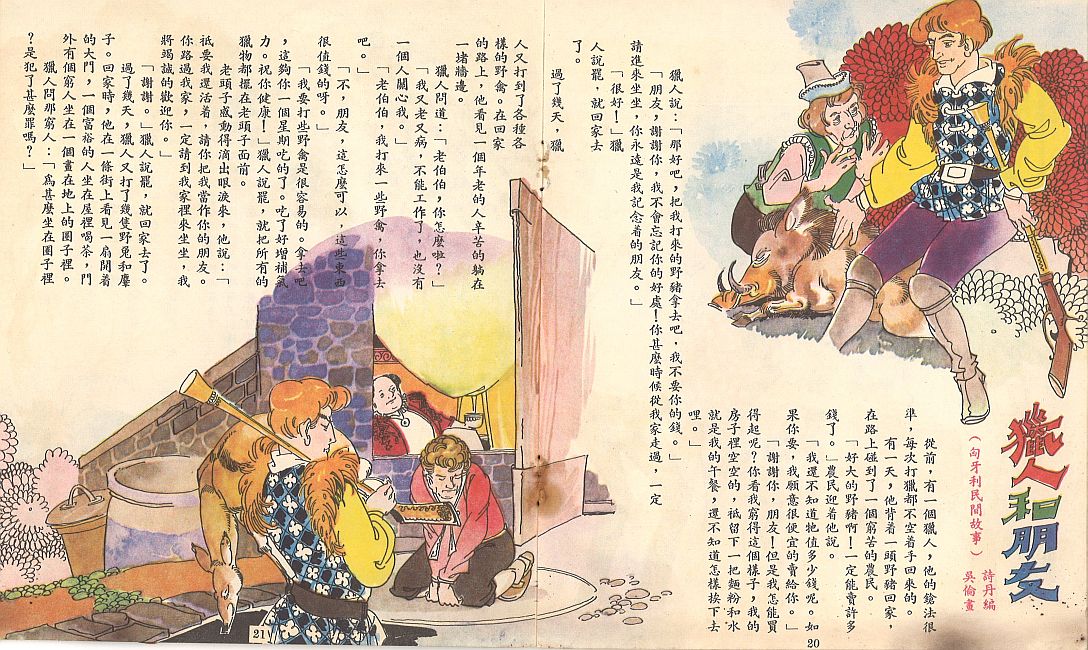 獵人和朋友
（匈牙利民間故事）
詩丹編
吳倫畫
從前，有一個獵人，他的鎗法很
準，每次打獵都不空着手回來的。
有一天，他背着一頭野豬回家，
在路上碰到了一個窮苦的農民。
「好大的野豬啊！一定能賣許多
錢了。」農民迎着他說。
「我還不知道牠值多少錢呢。如
果你要，我願意很便宜的賣給你。」
「謝謝你，朋友！但是我怎能買
得起呢？你看我窮得這個樣子，我的
房子裡空空的，祗留下一把麵粉和水
就是我的午餐，還不知道怎樣挨下去
哩。」
獵人說：「那好吧，把我打來的野豬拿去吧，我不要你的錢。」
「朋友，謝謝你，我不會忘記你的好處！你甚麼時候從我家走過，一定
請進來坐坐，你永遠是我記念着的朋友。」
「很好！」獵
人說罷，就回家去
了。
過了幾天，獵
人又打到了各種各
樣的野禽。在回家
的路上，他看見一個年老的人辛苦的躺在
一堵牆邊。
獵人問道：「老伯伯，你怎麼啦？」
「我又老又病，不能工作了，也沒有
一個人關心我。」
「老伯伯，我打來一些野禽，你拿去
吧。」
「不，朋友，這怎麼可以，這些東西
很值錢的呀。」
「我要打些野禽是很容易的。拿去吧
，這夠你一個星期吃的了。吃了好增補氣
力。祝你健康！」獵人說罷，就把所有的
獵物都擺在老頭子面前。
老頭子感動得滴出眼淚來，他說：「
祗要我還活着，請你把我當作你的朋友。
你路過我家，一定請到我家裡來坐坐，我
將竭誠的歡迎你。」
「謝謝。」獵人說罷，就回家去了。
過了幾天，獵人又打了幾隻野兔和麞
子。回家時，他在一條街上看見一扇開着
的大門，一個富裕的人坐在屋裡喝茶，門
外有個窮人坐在一個畫在地上的圈子裡。
獵人問那窮人：「爲甚麼坐在圈子裡
？是犯了甚麼罪嗎？」
20
21